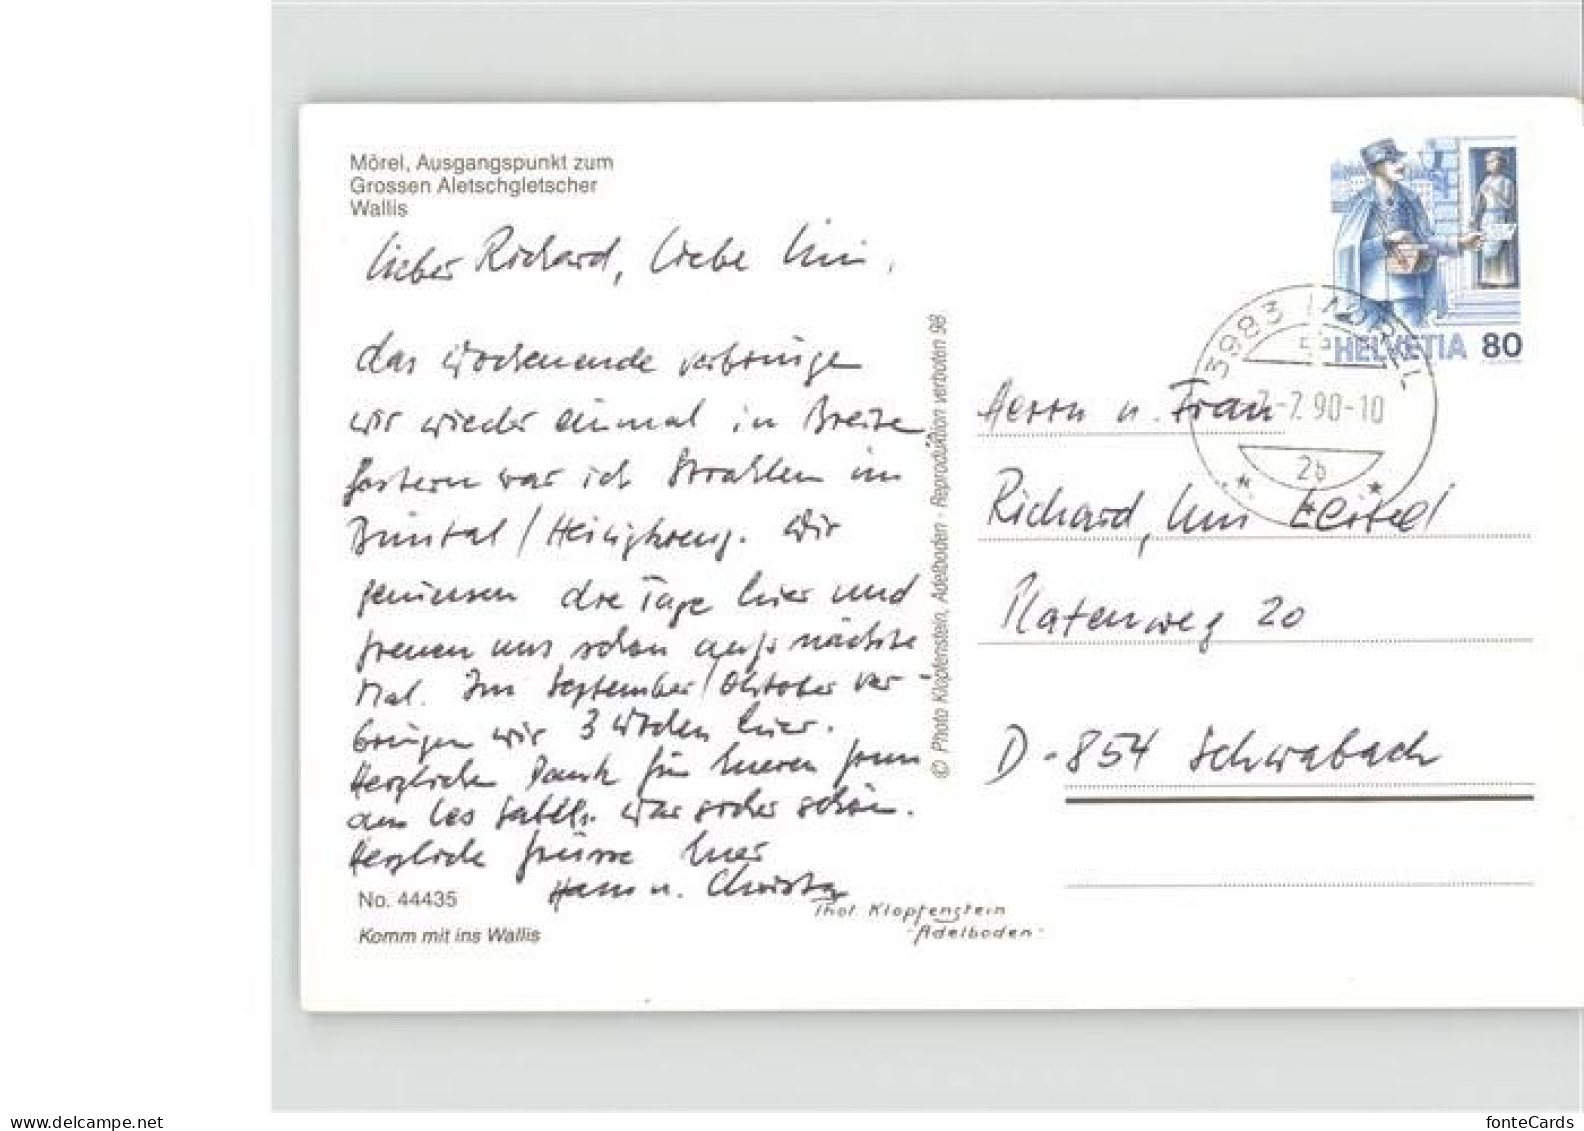 Mörel, Ausgangspunkt zum
Grossen Aletschgletscher
Wallis
Lieber Richard, liebe Uni,
das Wochenende verbringe
wir wieder einmal in Breite
Gestern war ich Strahlen im
Binntal / Heiligkreuz. Wir
geniessen die Tage hier und
freuen uns schon aufs nächste
Mal. Im September/Oktober ver-
bringen wir 3 Wochen hier.
Herzlichen Dank für Eueren
aus Les War sicher schön.
Herzliche Grüsse Euer
Hans u. Christa
No. 44435
Komm mit ins Wallis
Phot Klopfenstein
-Adelboden-
© Photo Klopfenstein, Adelboden - Reproduktion verboten 98
HELVETIA 80
3983 MÖREL
7.-7.90-10
2b
Herrn u. Frau
Richard, Uni
Platenweg 20
D-854 Schwabach
www.delcampe.net
fonteCards